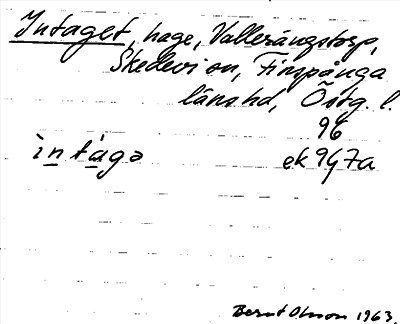 Intaget, hage, Vallerängstorp,
Skedevi sn, Finspånga
länshd, Östg. l.
96
ìntágə ek 9G7a
Bernt Olsson 1963.